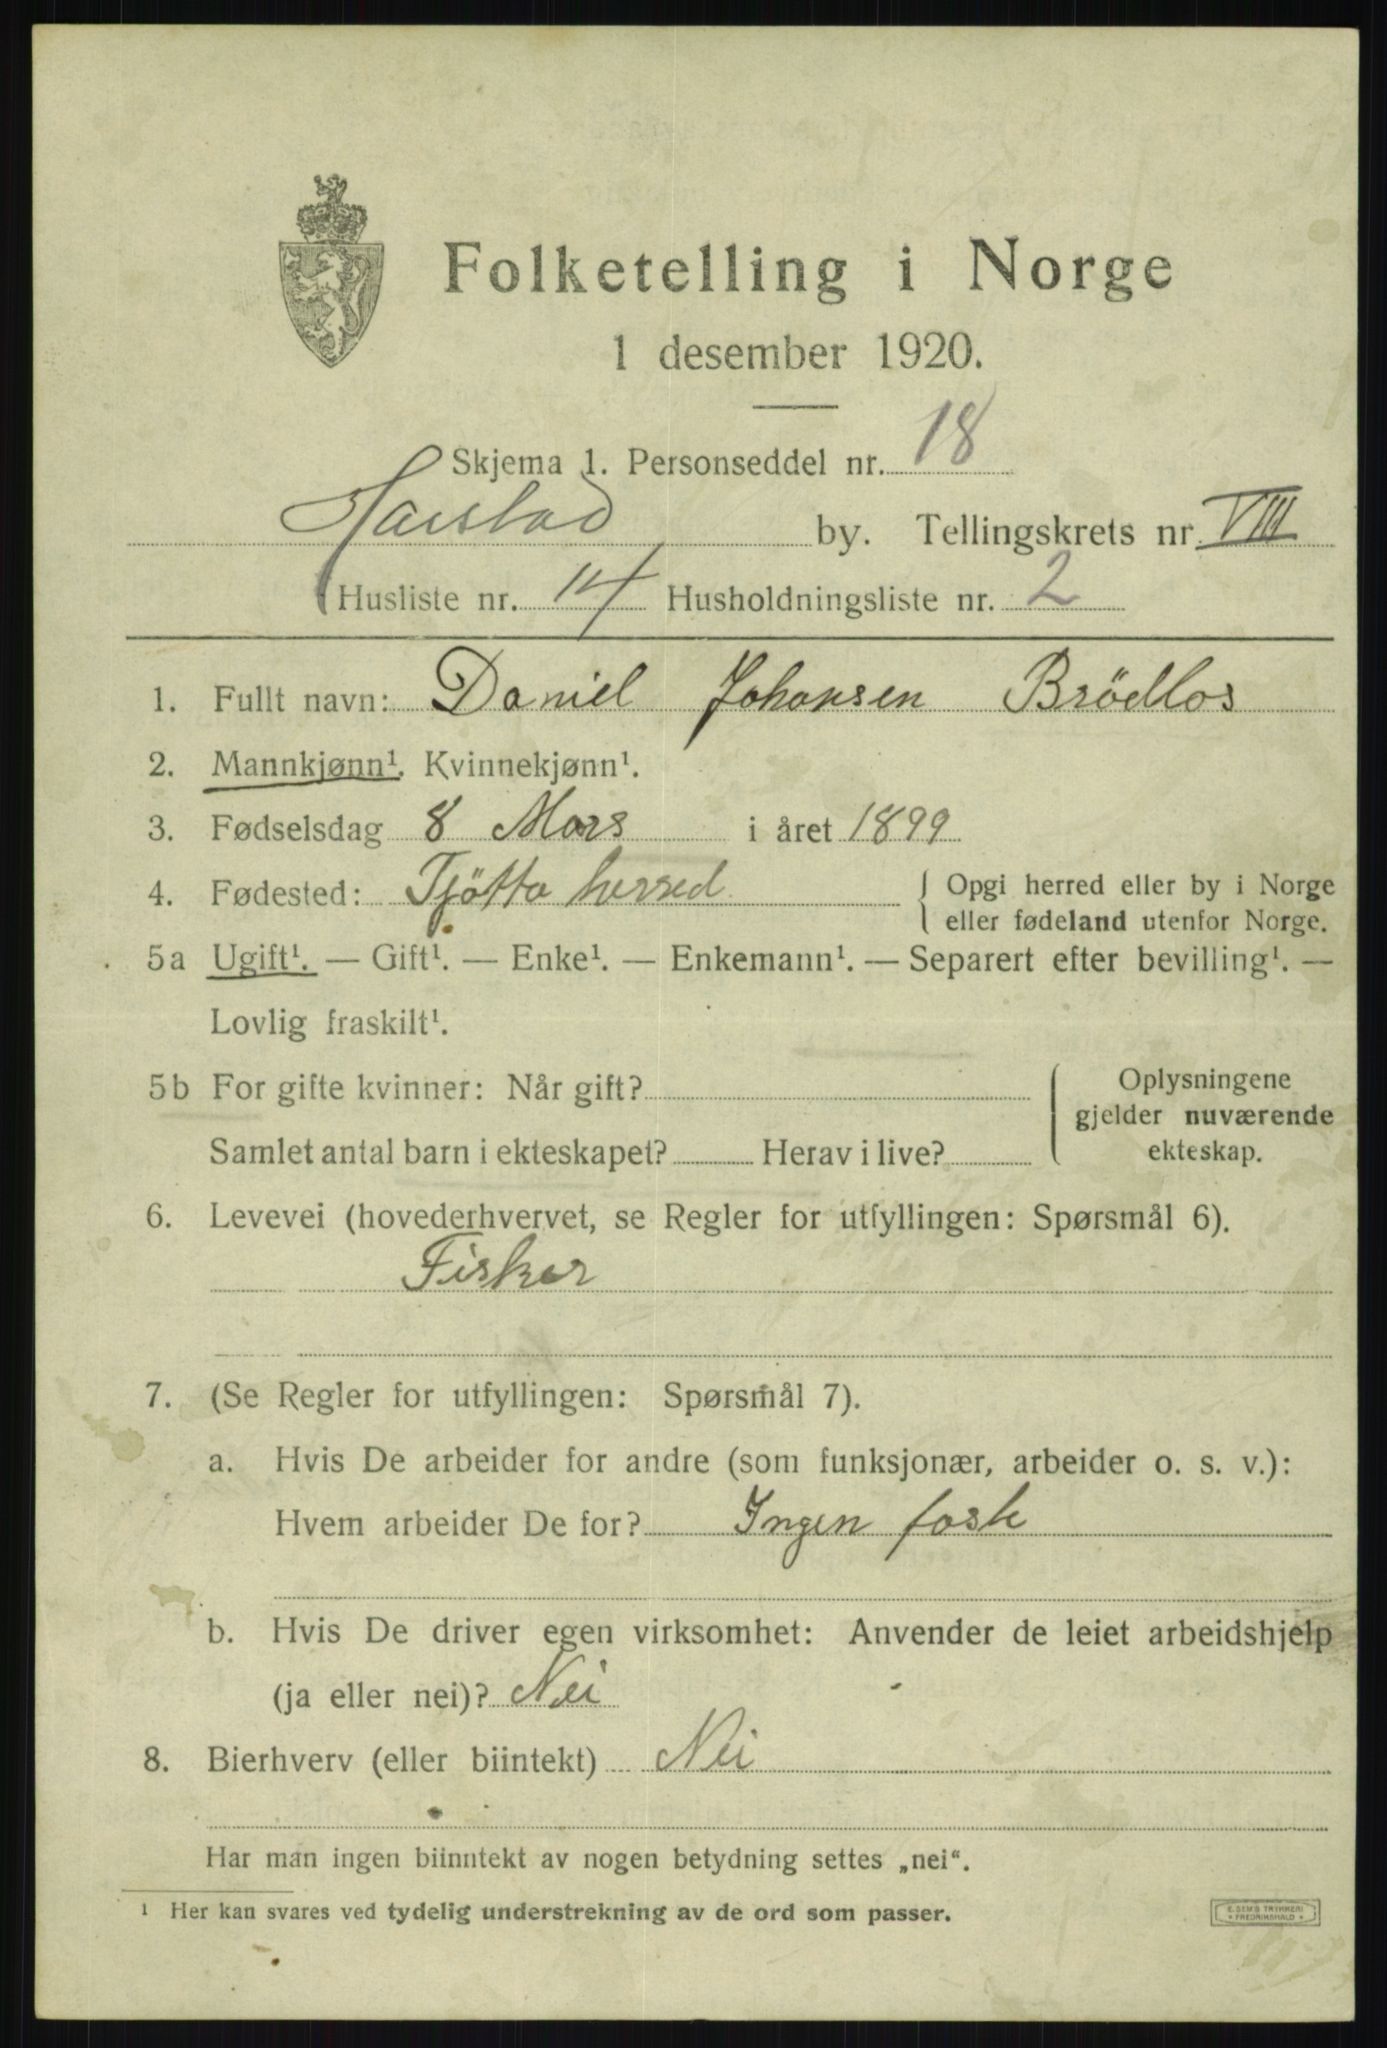 Folketelling i Norge
1 desember 1920.
Skjema 1. Personseddel nr. 18
Harstad by. Tellingskrets nr. VIII
Husliste nr. 14 Husholdningsliste nr. 2
1. Fullt navn: Daniel Johansen Brödlos
2. Mannkjønn¹. Kvinnekjønn¹.
3. Fødselsdag 8 Mars i året 1899
4. Fødested: Tjötta herred { Opgi herred eller by i Norge
eller fødeland utenfor Norge.
5a Ugift¹. — Gift¹. — Enke¹. — Enkemann¹. — Separert efter bevilling¹. —
Lovlig fraskilt¹.
5b For gifte kvinner: Når gift? { Oplysningene
gjelder nuværende
Samlet antal barn i ekteskapet? Herav i live? ekteskap.
6. Levevei (hovederhvervet, se Regler for utfyllingen: Spørsmål 6).
Fisker
7. (Se Regler for utfyllingen: Spørsmål 7).
a. Hvis De arbeider for andre (som funksjonær, arbeider o. s. v.):
Hvem arbeider De for? Ingen faste
b. Hvis De driver egen virksomhet: Anvender de leiet arbeidshjelp
(ja eller nei)? Nei
8. Bierhverv (eller biintekt) Nei
Har man ingen biinntekt av nogen betydning settes „nei“.
¹ Her kan svares ved tydelig understrekning av de ord som passer.
E. SEM'S TRYKKERI
FREDRIKSHALD